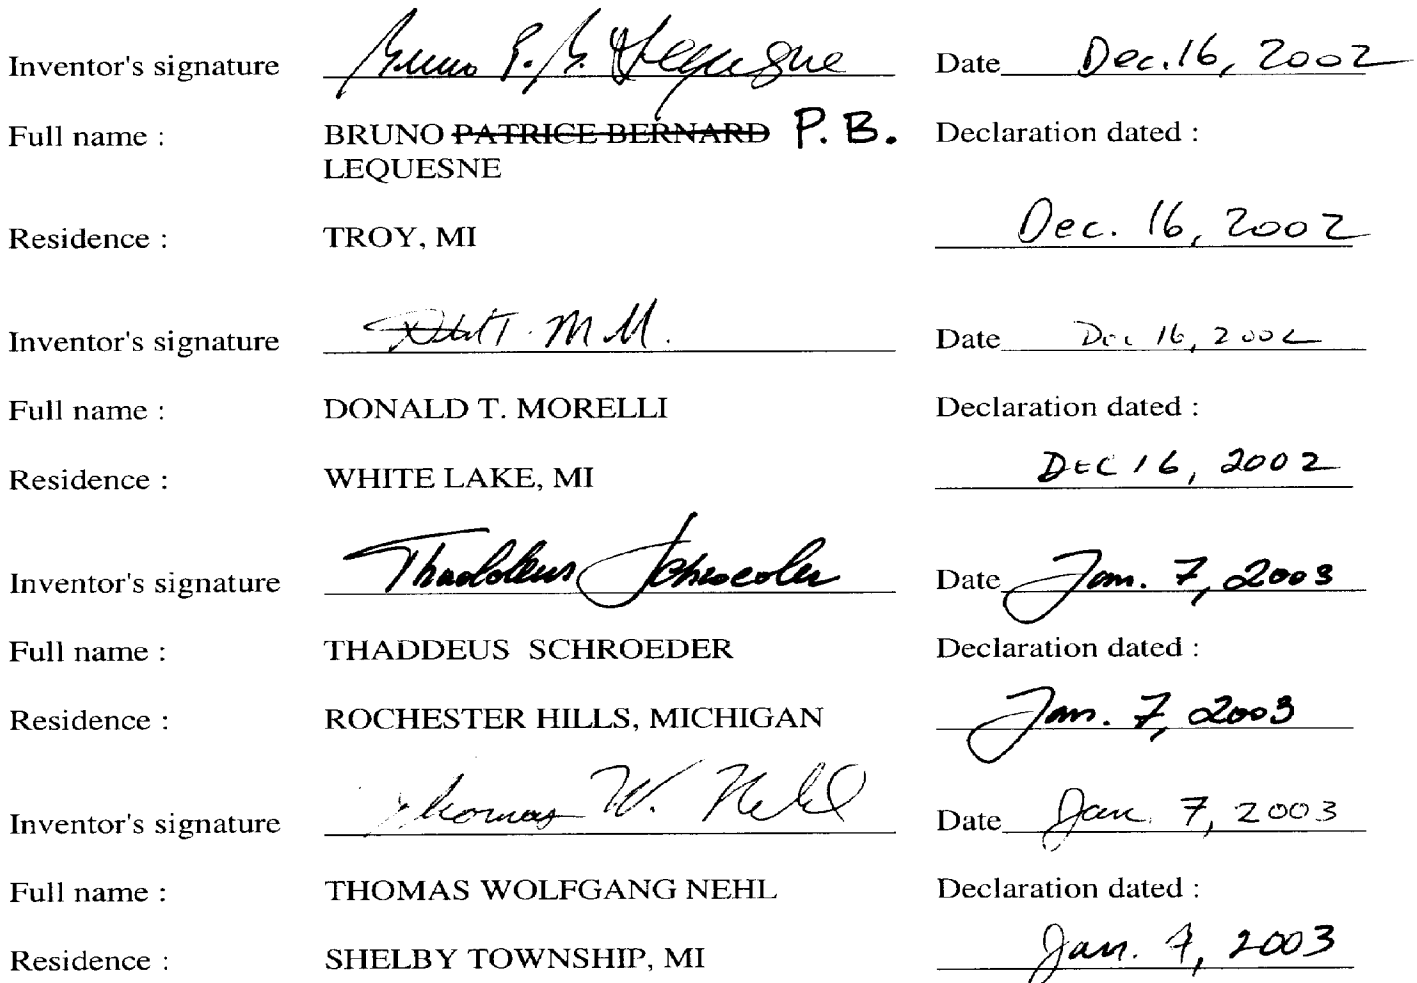 Inventor's signature Bruno P. B. Lequesne Date Dec. 16, 2002
Full name : BRUNO PATRICE BERNARD P. B. Declaration dated :
LEQUESNE
Residence : TROY, MI Dec. 16, 2002
Inventor's signature Date Dec 16, 2002
Full name : DONALD T. MORELLI Declaration dated :
Residence : WHITE LAKE, MI DEC 16, 2002
Inventor's signature Thaddeus Schroeder Date Jan. 7, 2003
Full name : THADDEUS SCHROEDER Declaration dated :
Residence : ROCHESTER HILLS, MICHIGAN Jan. 7, 2003
Inventor's signature Thomas W. Nehl Date Jan. 7, 2003
Full name : THOMAS WOLFGANG NEHL Declaration dated :
Residence : SHELBY TOWNSHIP, MI Jan. 7, 2003